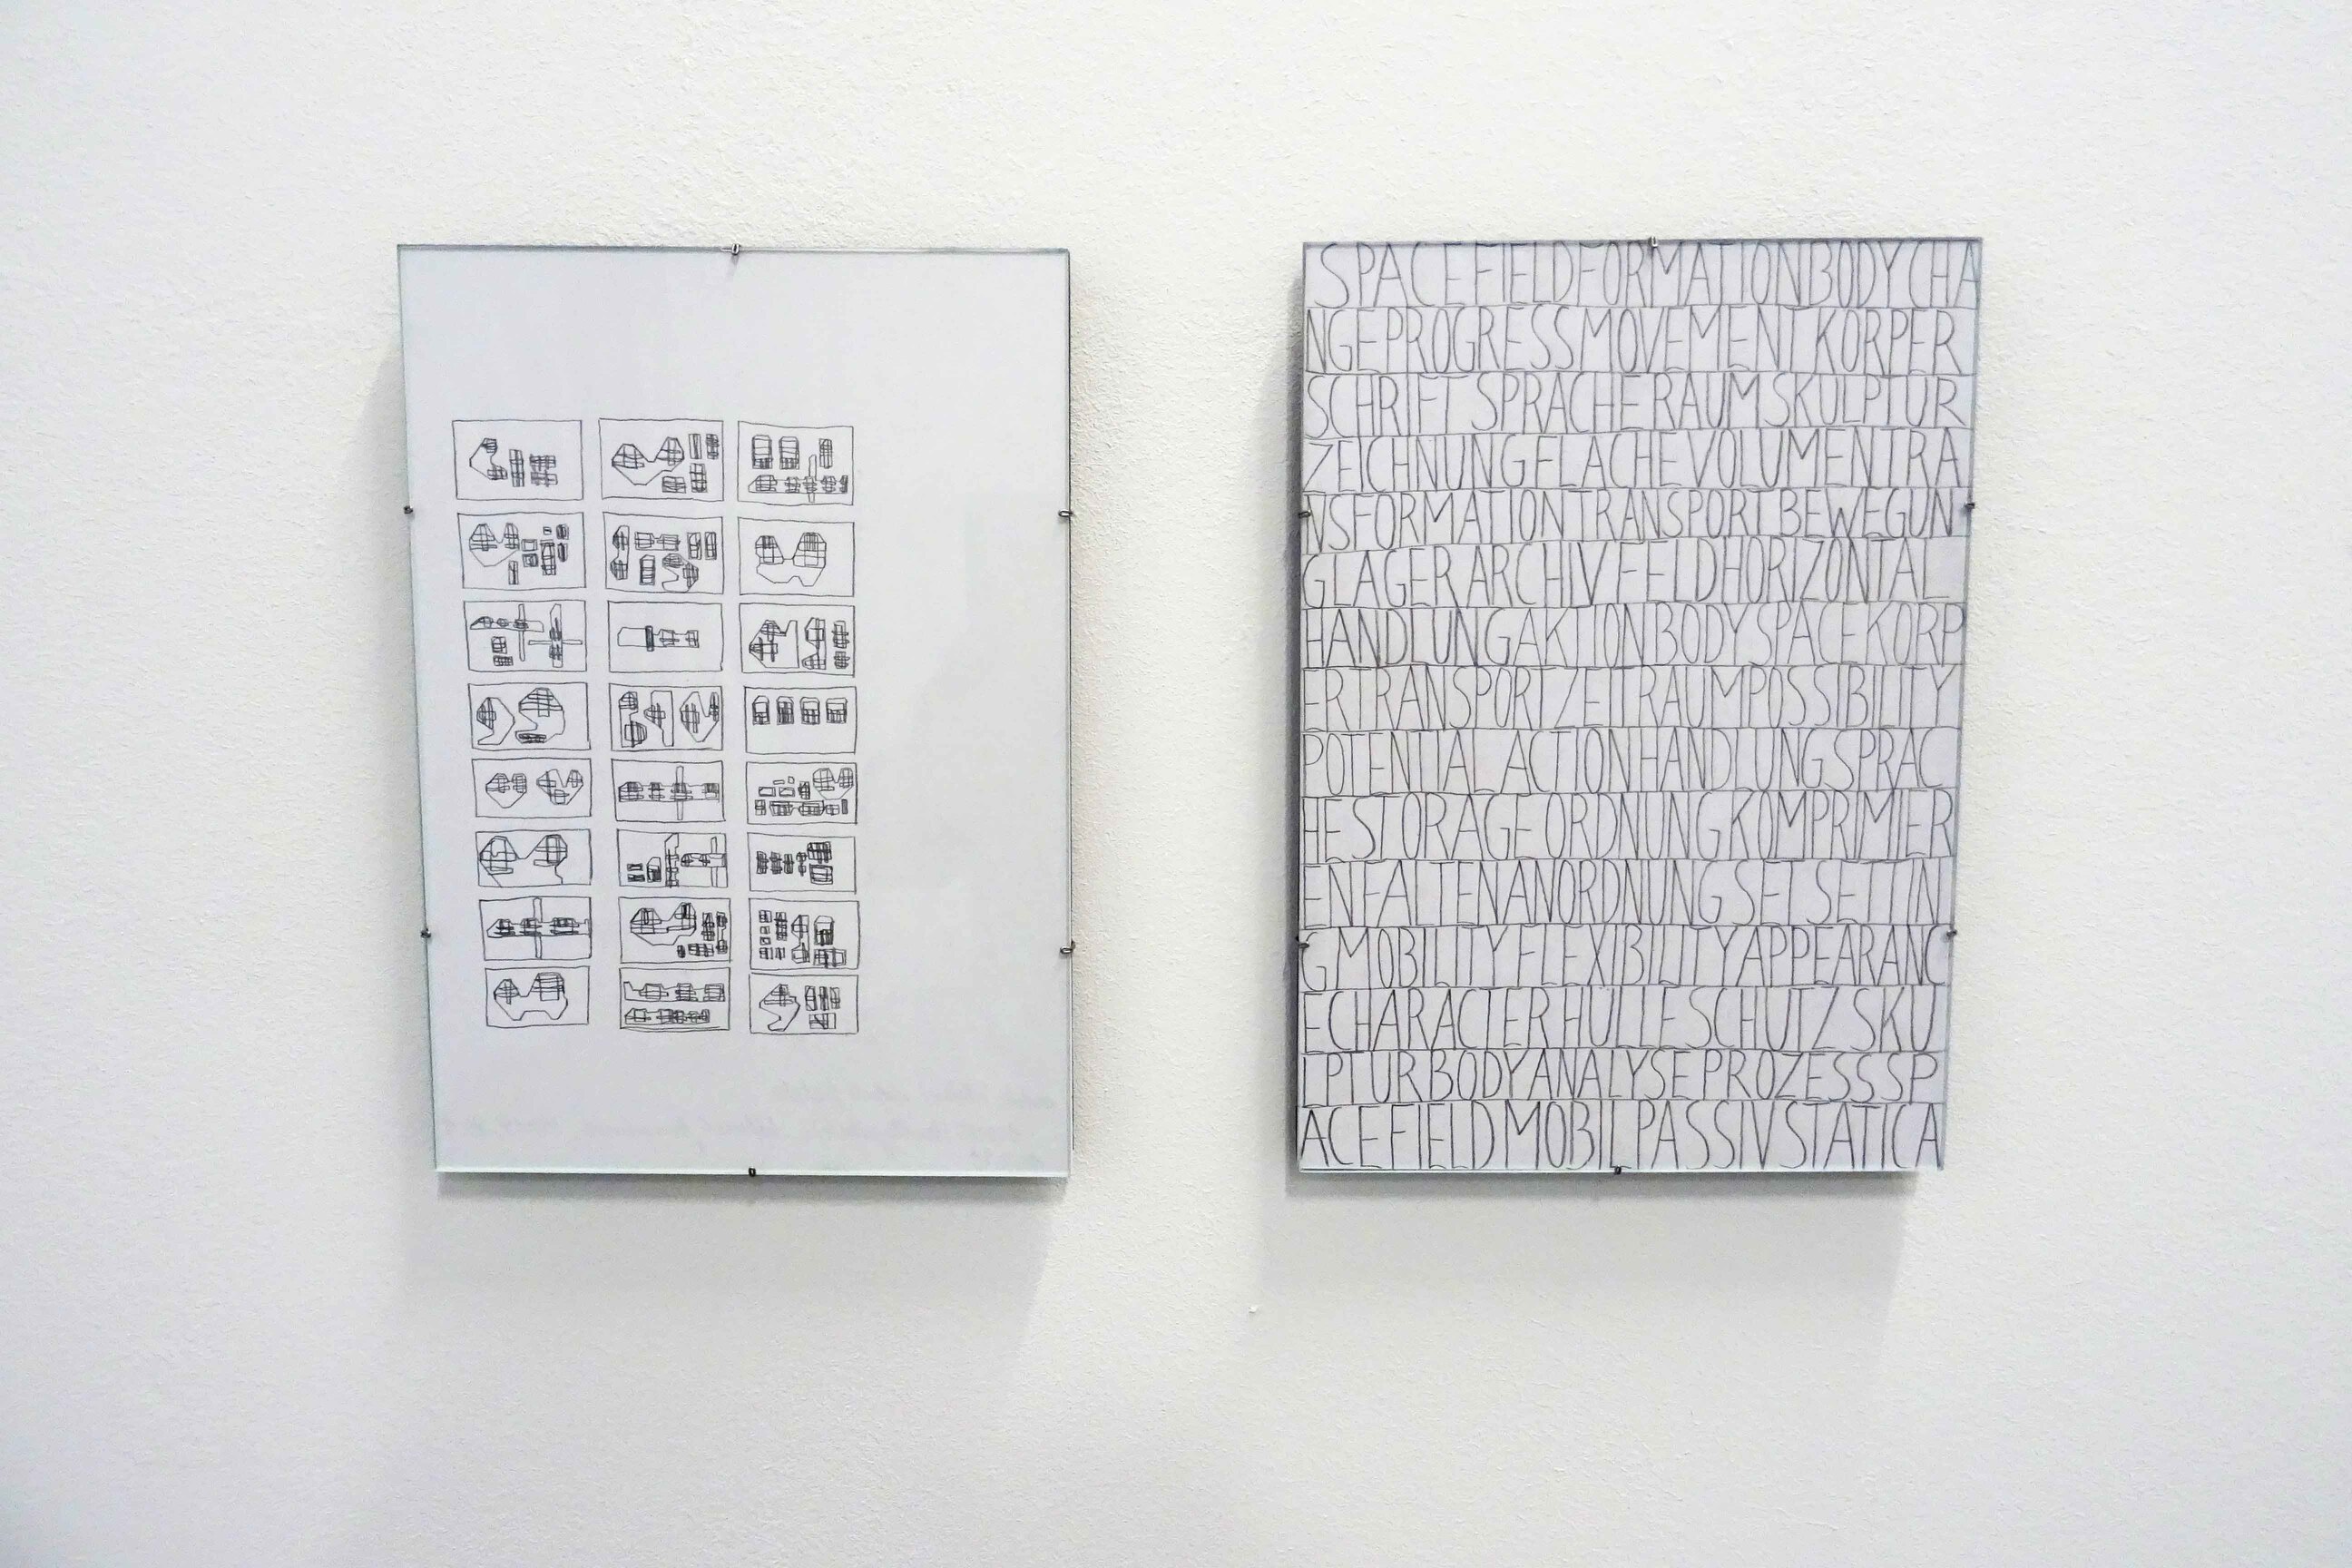 SPACE FIELD FORMATION BODY CHA
NGE PROGRESS MOVEMENT KÖRPER
SCHRIFT SPRACHE RAUM SKULPTUR
ZEICHNUNG FLÄCHE VOLUMEN TRA
NSFORMATION TRANSPORT BEWEGUN
G LAGER ARCHIV FELD HORIZONTAL
HANDLUNG AKTION BODY SPACE KÖRP
ER TRANSPORT ZEIT RAUM POSSIBILITY
POTENTIAL ACTION HANDLUNG SPRAC
HE STORAGE ORDNUNG KOMPRIMIER
EN FALTEN ANORDNUNG SET SETTIN
G MOBILITY FLEXIBILITY APPEARANC
E CHARACTER HÜLLE SCHUTZ SKU
LPTUR BODY ANALYSE PROZESS SP
ACE FIELD MOBIL PASSIV STATIC A